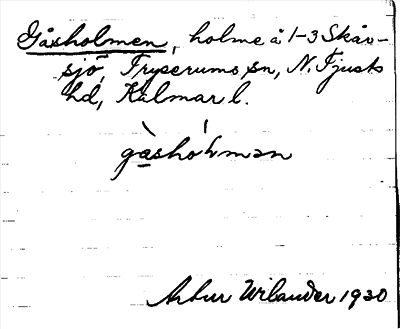 Gåsholmen, holme å 1-3 Skåv-
sjö, Tryserums sn, N. Tjusts
hd, Kalmar l.
gàshólmən
Artur Wilander 1920